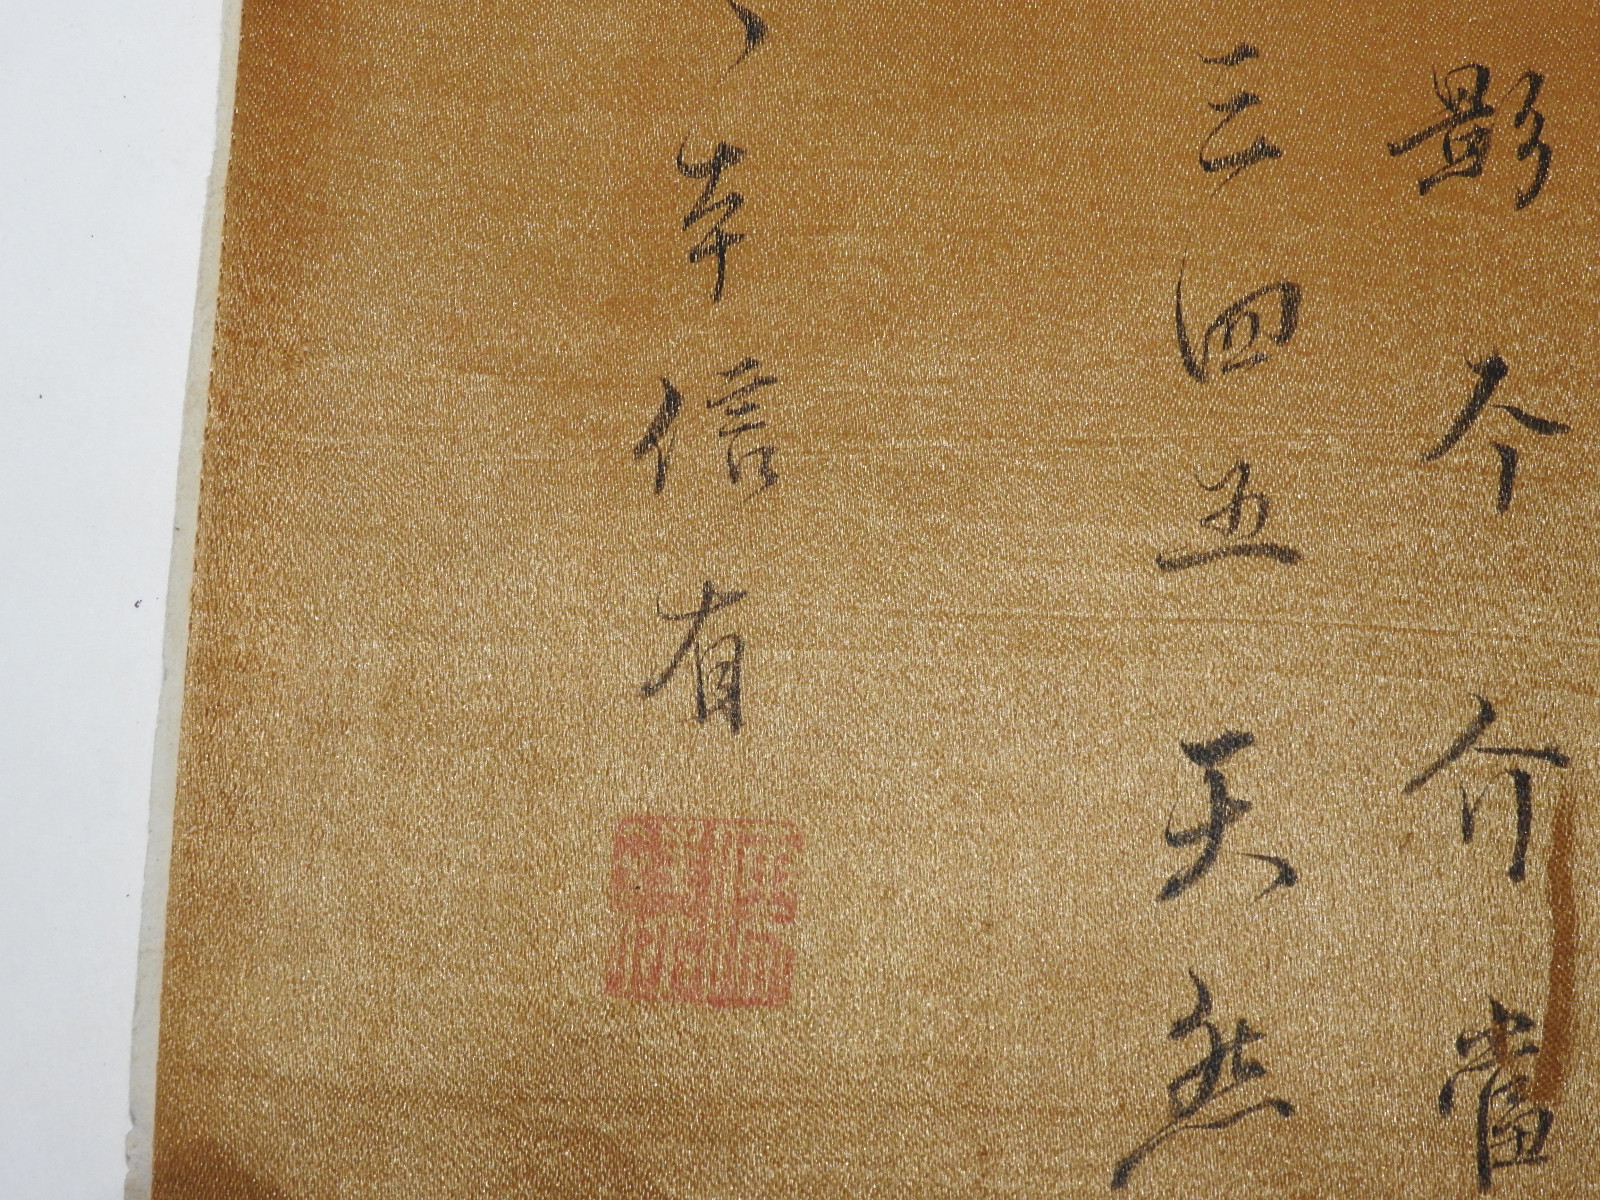 影今介當
三四五天然
本信有